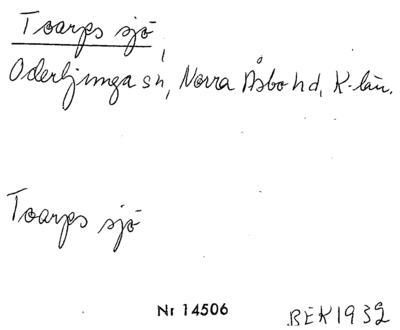 Toarps sjö,
Oderljunga sn, Norra Åsbo hd, K-län.
Toarps sjö
Nr 14506
BEK1932